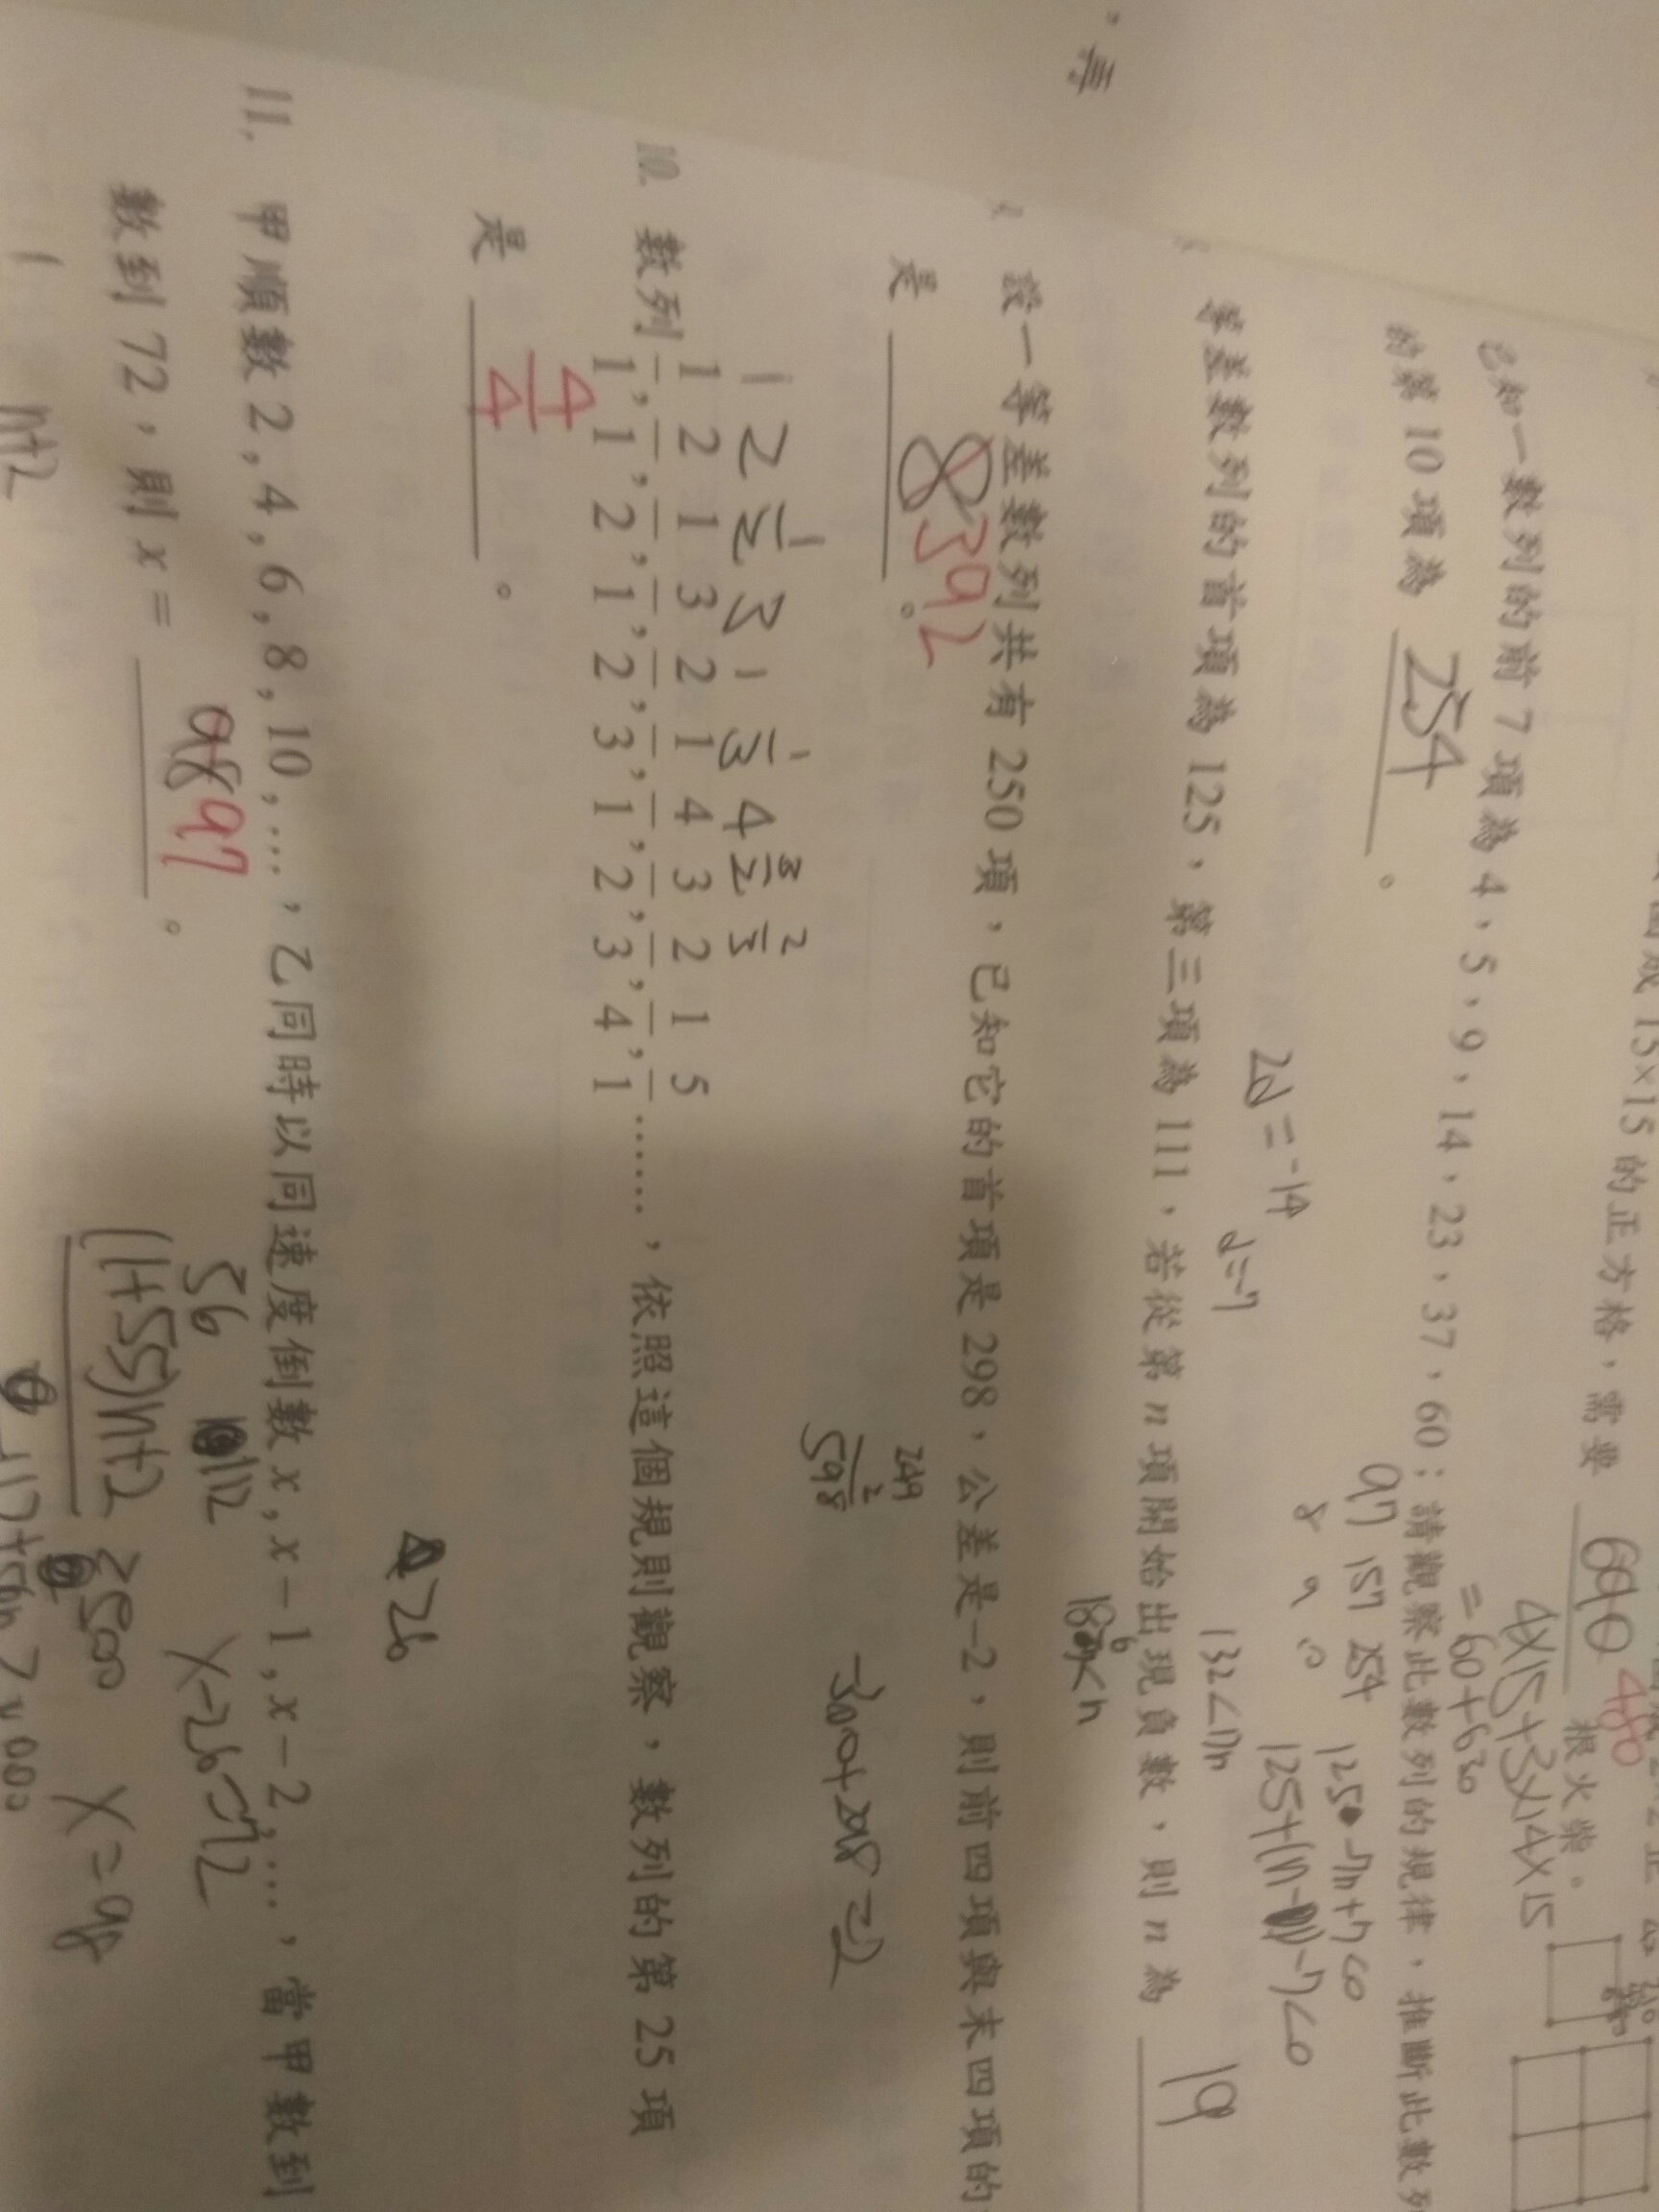 15×15 的正方格,需要 690 480 根火柴。
4×15+3×14×15
=60+630
已知一數列的前 7 項為 4,5,9,14,23,37,60;請觀察此數列的規律,推斷此數列
的第 10 項為 254 。
97 157 254
8 9
125-7n+7<0
132<7n
2d=-14 d=-7
等差數列的首項為 125,第三項為 111,若從第 n 項開始出現負數,則 n 為 19
設一等差數列共有 250 項,已知它的首項是 298,公差是-2,則前四項與末四項的
是 8 392 。
249
2
598
-300+298=-2
1 2 1/2 3 1 1/3 4 3/2 2/3
10. 數列 1/1, 2/1, 1/2, 3/1, 2/2, 1/3, 4/1, 3/2, 2/3, 1/4, 5/1 ……,依照這個規則觀察,數列的第 25 項
是 4/4 。
26
11. 甲順數 2,4,6,8,10,…,乙同時以同速度倒數 x,x-1,x-2,…,當甲數到
數到 72,則 x= 98 97 。
56 112 x-26=72
(1+55)n+2 ≥500 x=98
n+2